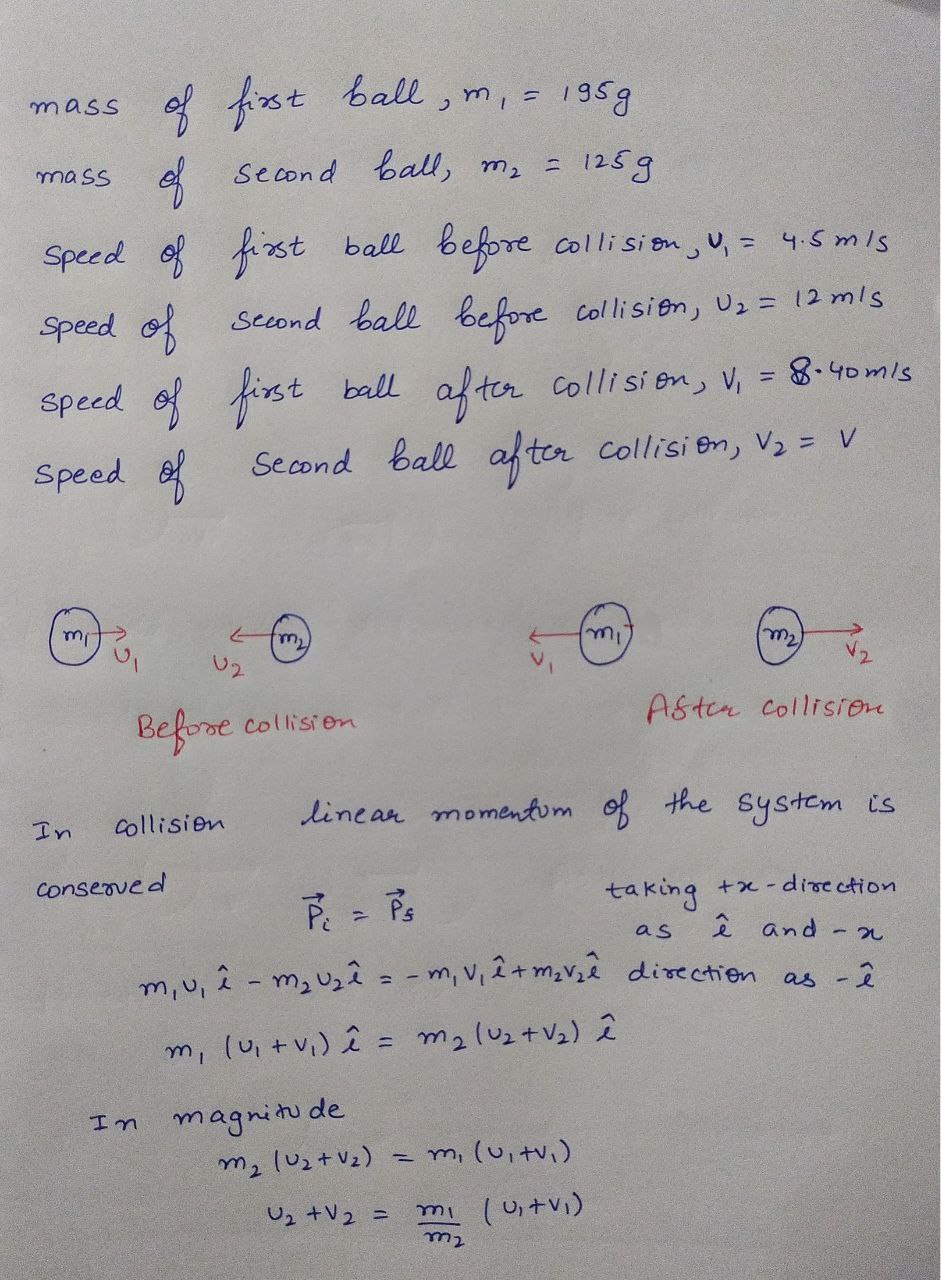 mass of first ball, m₁ = 195g
mass of second ball, m₂ = 125g
speed of first ball before collision, U₁ = 4.5 m/s
speed of second ball before collision, U₂ = 12 m/s
speed of first ball after collision, V₁ = 8.40 m/s
speed of second ball after collision, V₂ = V
m₁ U₁ U₂ m₂ V₁ m₁ m₂ V₂
Before collision After collision
In collision linear momentum of the system is
conserved
P⃗i = P⃗f taking +x-direction
as î and -x
m₁U₁ î - m₂U₂ î = -m₁V₁ î + m₂V₂ î direction as -î
m₁ (U₁ + V₁) î = m₂ (U₂ + V₂) î
In magnitude
m₂ (U₂ + V₂) = m₁ (U₁ + V₁)
U₂ + V₂ = m₁/m₂ (U₁ + V₁)